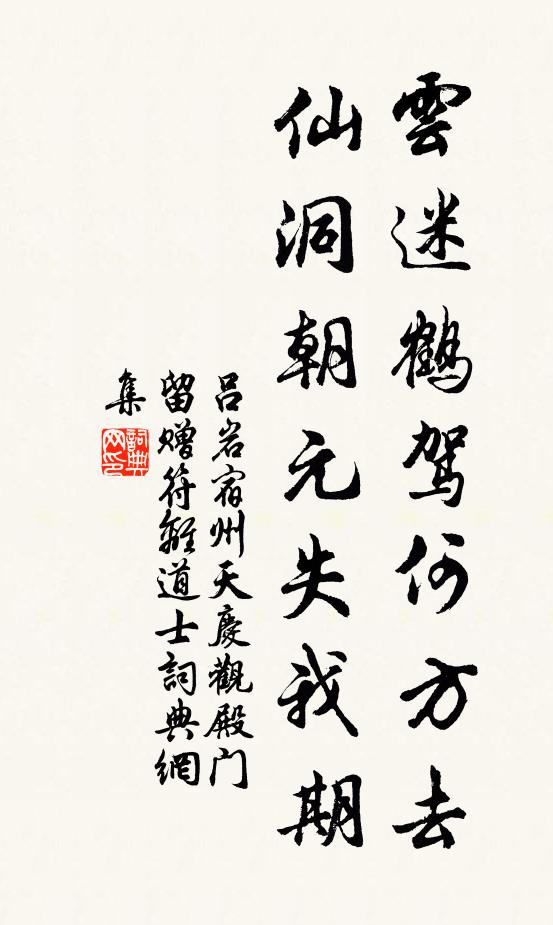 雲迷鶴駕何方去
仙洞朝元失我期
呂岩宿州天慶觀殿门
留赠符離道士詞典網
集
詞典
网印